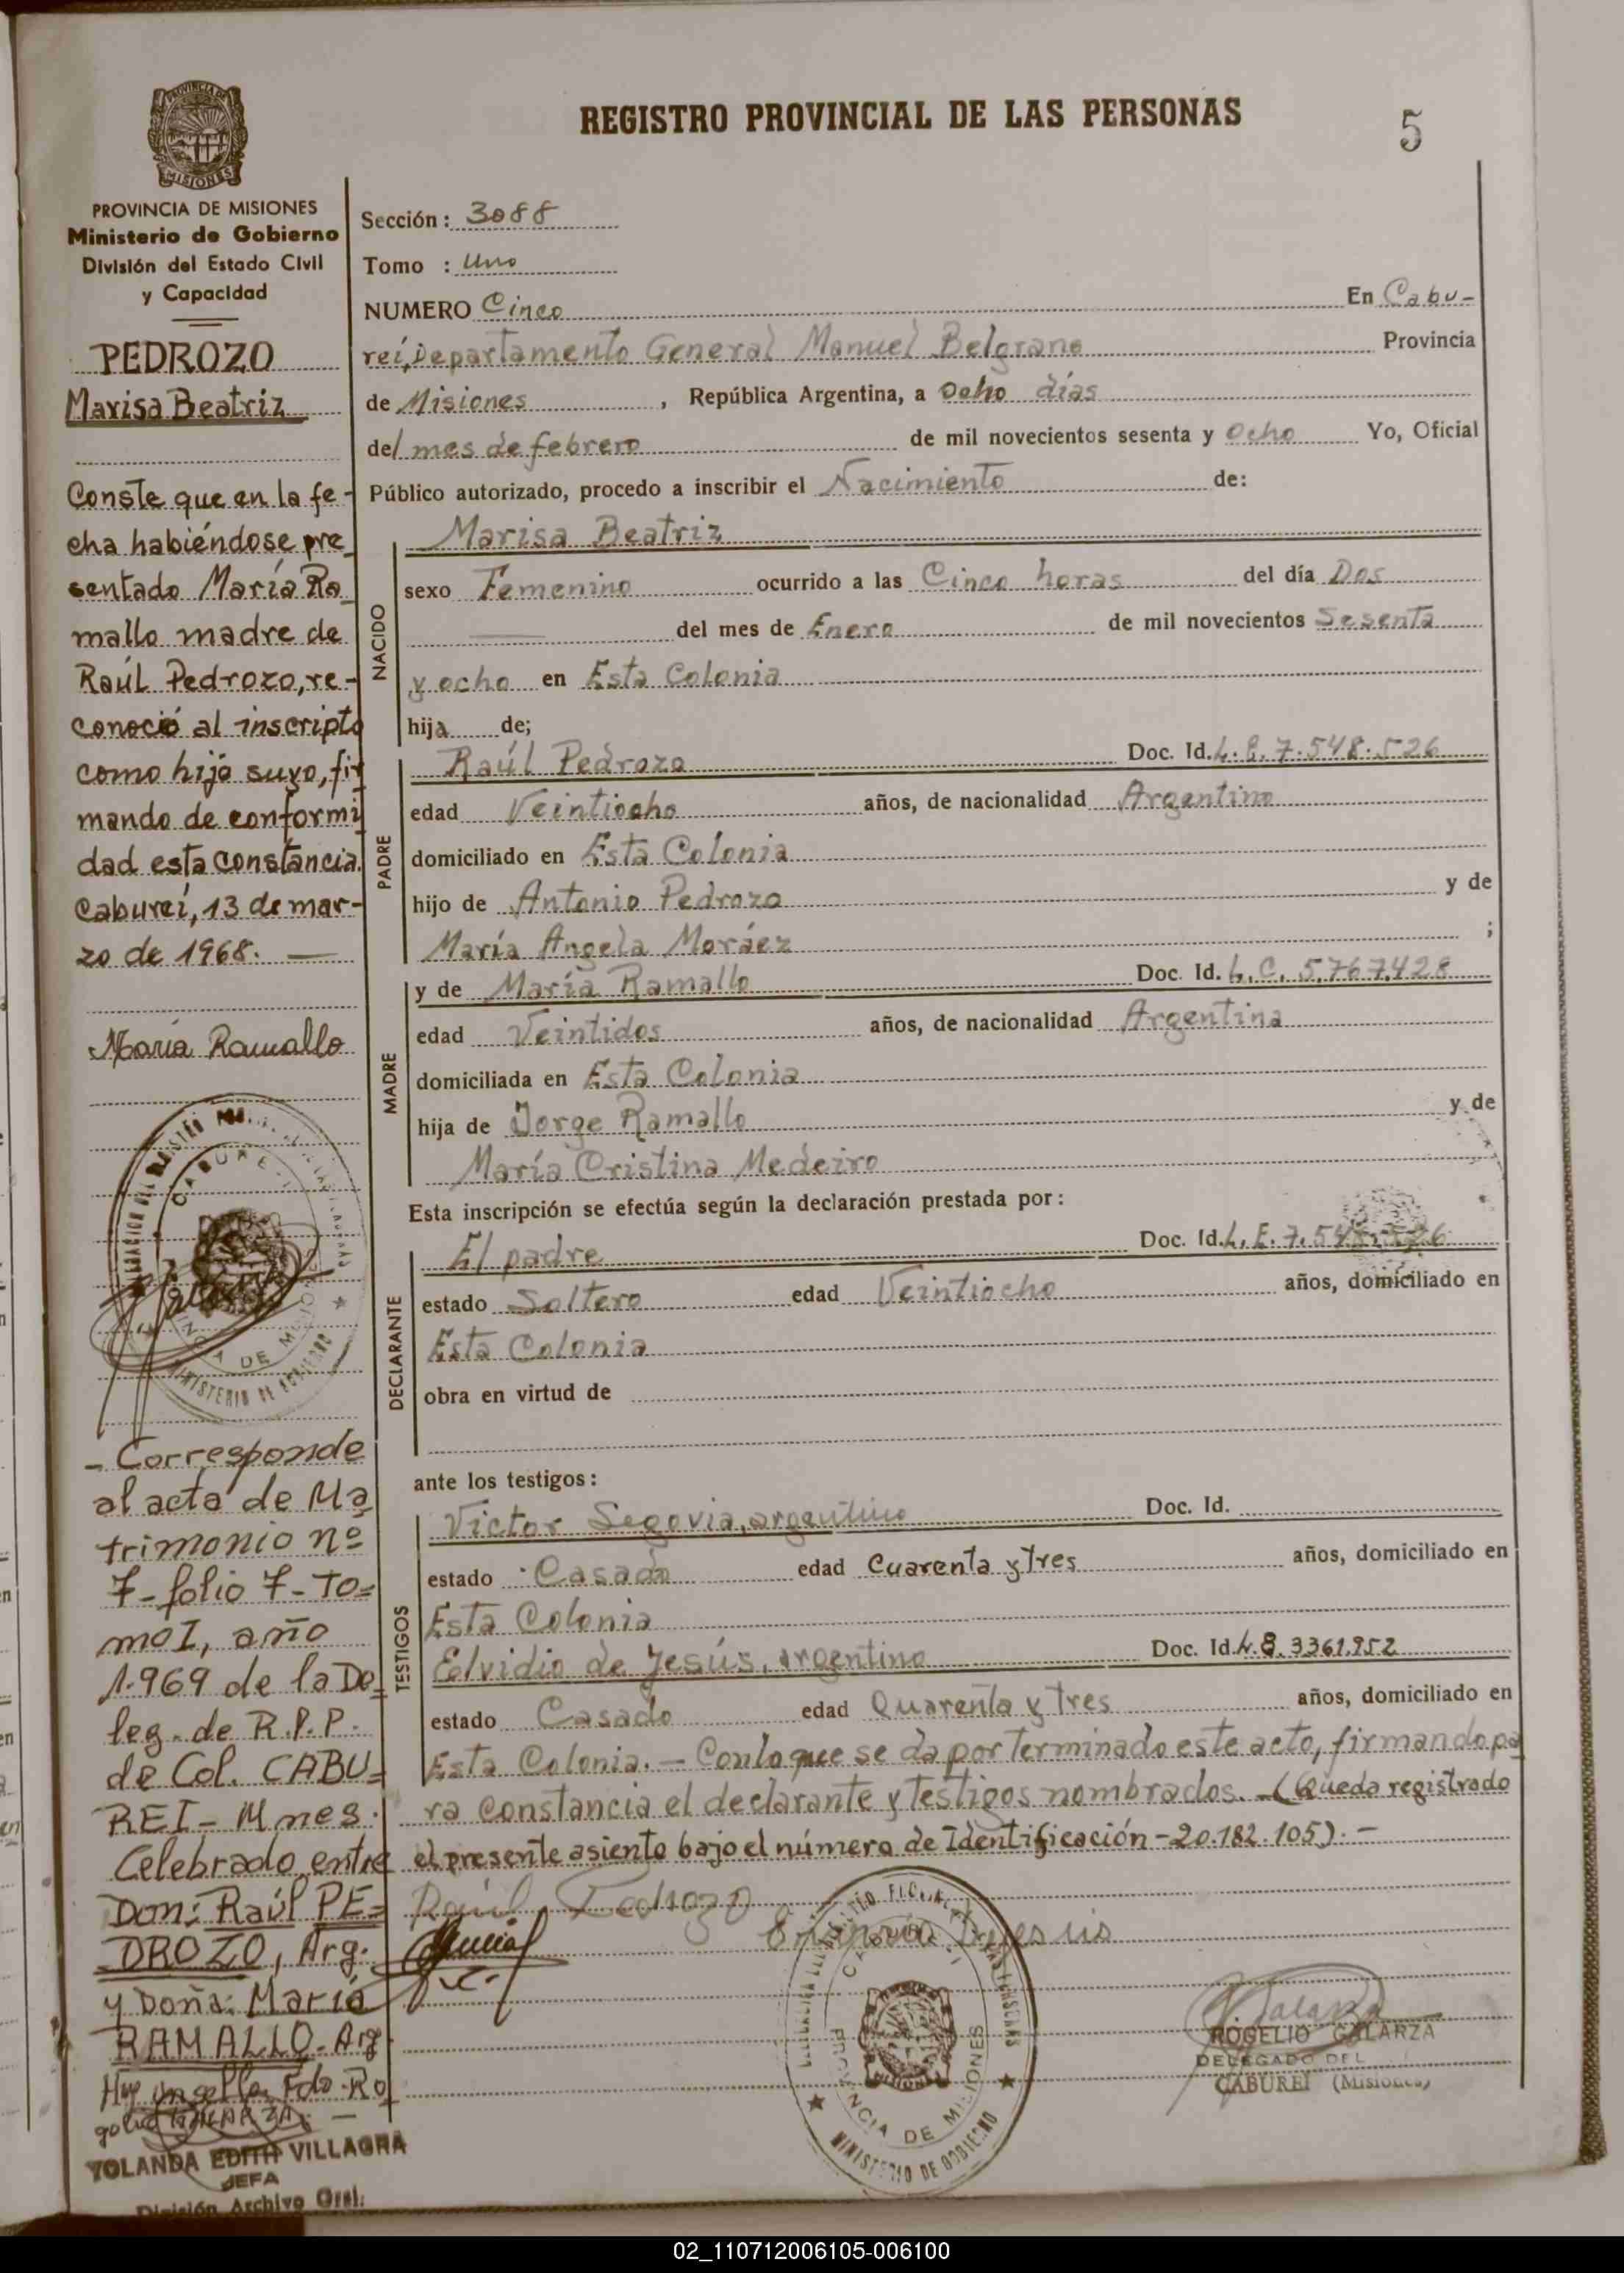 REGISTRO PROVINCIAL DE LAS PERSONAS
5
PROVINCIA DE MISIONES
Ministerio de Gobierno
División del Estado Civil
y Capacidad
PEDROZO
Marisa Beatriz
Conste que en la fe-
cha habiéndose pre
sentado María Ra
mallo madre de
Raúl Pedrozo, re-
conoció al inscripto
como hijo suyo, fir
mando de conformi
dad esta constancia.
Cabureí, 13 de mar-
zo de 1968. —
María Ramallo
CABUREI
MINISTERIO DE GOBIERNO
- Corresponde
al acta de Ma
trimonio nº
7- folio 7- TO=
mo I, año
1.969 de la De
leg. de R.P.P.
de Col. CABU=
REI - Mnes.
Celebrado entre
Don: Raúl PE=
DROZO, Arg.
y Doña: María
RAMALLO - Arg.
Hay un sello. Fdo. Ro
YOLANDA EDITH VILLAGRA
JEFA
División Archivo Gral.
Sección: 3088
Tomo : Uno
NUMERO Cinco En Cabu-
reí, Departamento General Manuel Belgrano Provincia
de Misiones , República Argentina, a Ocho días
del mes de febrero de mil novecientos sesenta y Ocho Yo, Oficial
Público autorizado, procedo a inscribir el Nacimiento de:
NACIDO
Marisa Beatriz
sexo Femenino ocurrido a las Cinco horas del día Dos
del mes de Enero de mil novecientos Sesenta
y ocho en Esta Colonia
hija de;
PADRE
Raúl Pedrozo Doc. Id. 7.548.526
edad Veintiocho años, de nacionalidad Argentino
domiciliado en Esta Colonia
hijo de Antonio Pedrozo y de
María Angela Moráez ;
MADRE
y de María Ramallo Doc. Id. L.C. 5.767.428
edad Veintidos años, de nacionalidad Argentina
domiciliada en Esta Colonia
hija de Jorge Ramallo y de
María Cristina Medeiro
Esta inscripción se efectúa según la declaración prestada por:
DECLARANTE
El padre Doc. Id. L.E. 7.548.526
estado Soltero edad Veintiocho años, domiciliado en
Esta Colonia
obra en virtud de
ante los testigos:
TESTIGOS
Victor Segovia, argentino Doc. Id.
estado Casado edad Cuarenta y tres años, domiciliado en
Esta Colonia
Elvidio de Jesús, argentino Doc. Id. 3361.952
estado Casado edad Quarenta y tres años, domiciliado en
Esta Colonia. — Con lo que se da por terminado este acto, firmando pa
ra constancia el declarante y testigos nombrados. - (Queda registrado
el presente asiento bajo el número de Identificación - 20.182.105). -
Raúl Pedrozo
CABUREI
PROVINCIA DE MISIONES
MINISTERIO DE GOBIERNO
ROGELIO GALARZA
DELEGADO DEL
CABUREI (Misiones)
02_110712006105-006100